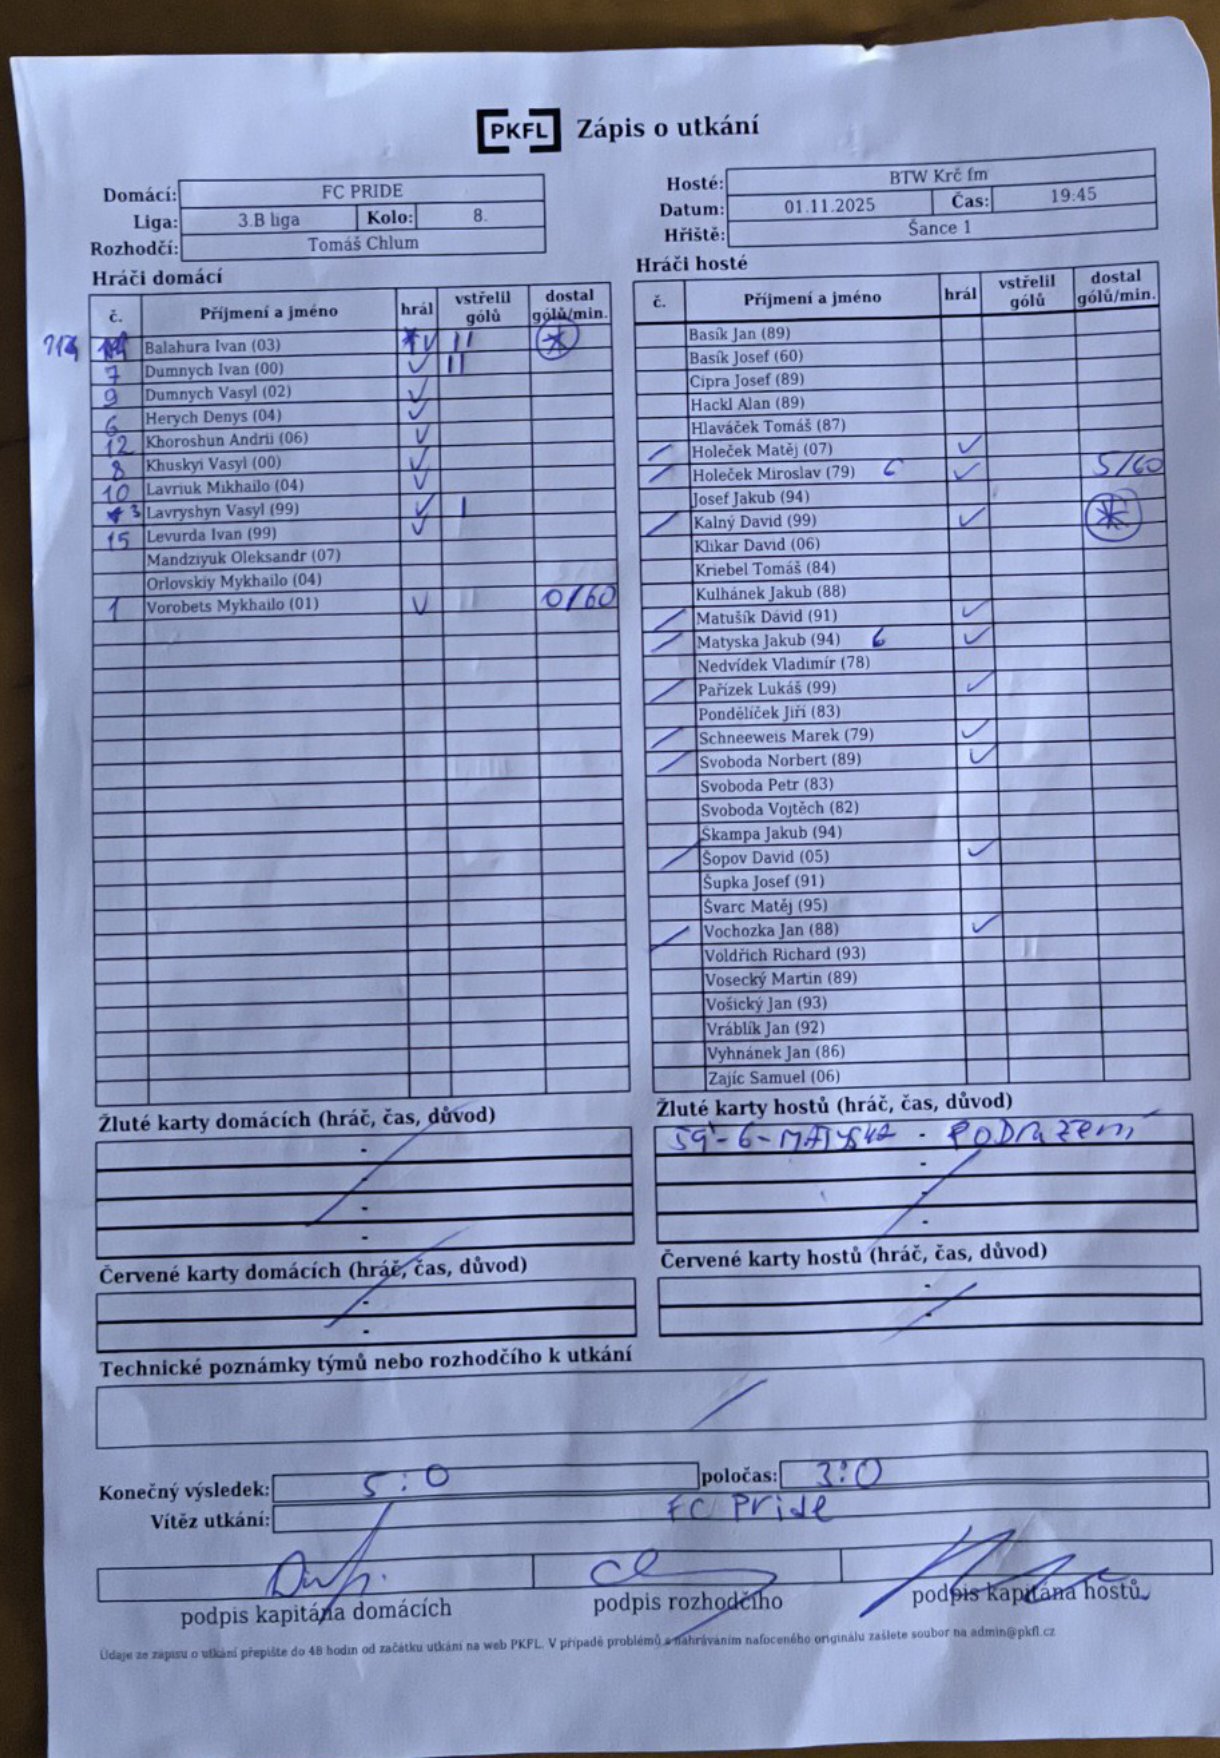 PKFL Zápis o utkání
Domácí: FC PRIDE
Liga: 3.B liga Kolo: 8.
Rozhodčí: Tomáš Chlum
Hosté: BTW Krč fm
Datum: 01.11.2025 Čas: 19:45
Hřiště: Šance 1
Hráči domácí
č. Příjmení a jméno hrál vstřelil gólů dostal gólů/min.
Balahura Ivan (03) V II
7 Dumnych Ivan (00) V II
9 Dumnych Vasyl (02) V
6 Herych Denys (04) V
12 Khoroshun Andrii (06) V
8 Khuskyi Vasyl (00) V
10 Lavriuk Mikhailo (04) V
3 Lavryshyn Vasyl (99) V I
15 Levurda Ivan (99) V
Mandziyuk Oleksandr (07)
Orlovskiy Mykhailo (04)
1 Vorobets Mykhailo (01) V 0/60
Hráči hosté
č. Příjmení a jméno hrál vstřelil gólů dostal gólů/min.
Basík Jan (89)
Basík Josef (60)
Cipra Josef (89)
Hackl Alan (89)
Hlaváček Tomáš (87)
Holeček Matěj (07)
Holeček Miroslav (79) 5/60
Josef Jakub (94)
Kalný David (99)
Klikar David (06)
Kriebel Tomáš (84)
Kulhánek Jakub (88)
Matušík Dávid (91)
Matyska Jakub (94) 6
Nedvídek Vladimír (78)
Pařízek Lukáš (99)
Pondělíček Jiří (83)
Schneeweis Marek (79)
Svoboda Norbert (89)
Svoboda Petr (83)
Svoboda Vojtěch (82)
Škampa Jakub (94)
Šopov David (05)
Šupka Josef (91)
Švarc Matěj (95)
Vochozka Jan (88)
Voldřich Richard (93)
Vosecký Martin (89)
Vošický Jan (93)
Vráblík Jan (92)
Vyhnánek Jan (86)
Zajíc Samuel (06)
Žluté karty domácích (hráč, čas, důvod)
-
-
-
-
Žluté karty hostů (hráč, čas, důvod)
59' - 6 - MATYSKA - PODRAŽENÍ
-
-
-
Červené karty domácích (hráč, čas, důvod)
-
-
Červené karty hostů (hráč, čas, důvod)
-
-
Technické poznámky týmů nebo rozhodčího k utkání
Konečný výsledek: 5:0 poločas: 3:0
Vítěz utkání: FC Pride
podpis kapitána domácích podpis rozhodčího podpis kapitána hostů
Údaje ze zápisu o utkání přepište do 48 hodin od začátku utkání na web PKFL. V případě problémů s nahráváním nafoceného originálu zašlete soubor na admin@pkfl.cz